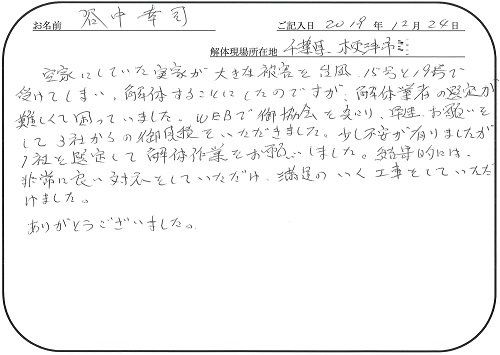 お名前 谷中幸司 ご記入日 2019年12月24日
解体現場所在地 千葉県 木更津市
空家にしていた実家が大きな被害を台風15号と19号で
受けてしまい、解体することにしたのですが、解体業者の選定が
難しくて困っていました。WEBで御協会を知り、早速お願いを
して3社からの御見積をいただきました。少し不安が有りましたが
1社を選定して解体作業をお願いしました。結果的には、
非常に良い対応をしていただけ、満足のいく工事をしていただ
けました。
ありがとうございました。